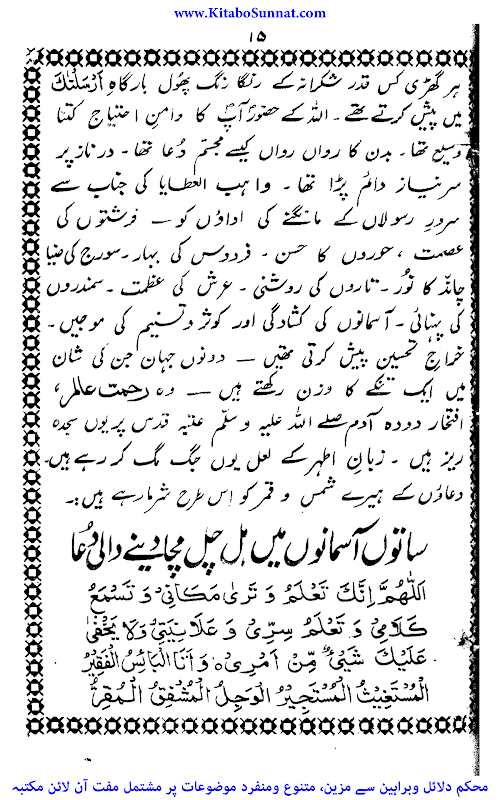 www.KitaboSunnat.com
۱۵
ہر گھڑی کس قدر شکرانہ کے رنگا رنگ پھول بارگاہِ اَرْسَلْنٰكَ
میں پیش کرتے تھے۔ اللہ کے حضور آپؐ کا دامنِ احتیاج کتنا
وسیع تھا۔ بدن کا رواں رواں کیسے مجسّم دُعا تھا۔ درِ ناز پر
سرِ نیاز دائم پڑا تھا۔ واہب العطایا کی جناب سے
سرورِ رسولاں کے مانگنے کی اداؤں کو — فرشتوں کی
عصمت ، حوروں کا حسن۔ فردوس کی بہار۔ سورج کی ضیا
چاند کا نُور۔ تاروں کی روشنی۔ عرش کی عظمت۔ سمندروں
کی پہنائی۔ آسمانوں کی کشادگی اور کوثر و تسنیم کی موجیں۔
خراجِ تحسین پیش کرتی تھیں — دونوں جہان جن کی شان
میں ایک تنکے کا وزن رکھتے ہیں — وہ رحمتِ عالم،
افتخارِ دودہ آدم صلے اللہ علیہ و سلّم عتبّہ قدس پر یوں سجدہ
ریز ہیں۔ زبانِ اطہر کے لعل یوں جگ مگ کر رہے ہیں۔
دعاؤں کے ہیرے شمس و قمر کو اس طرح شرما رہے ہیں:۔
ساتوں آسمانوں میں ہل چل مچا دینے والی دُعا
اَللّٰهُمَّ اِنَّكَ تَعْلَمُ وَ تَرٰى مَكَانِىْ وَ تَسْمَعُ
كَلَامِىْ وَ تَعْلَمُ سِرِّىْ وَ عَلَانِيَتِىْ وَلَا يَخْفٰى
عَلَيْكَ شَيْئٌ مِّنْ اَمْرِىْ ٥ وَ اَنَا الْبَائِسُ الْفَقِيْرُ
الْمُسْتَغِيْثُ الْمُسْتَجِيْرُ الْوَجِلُ الْمُشْفِقُ الْمُقِرُّ
محکم دلائل وبراہین سے مزین، متنوع ومنفرد موضوعات پر مشتمل مفت آن لائن مکتبہ